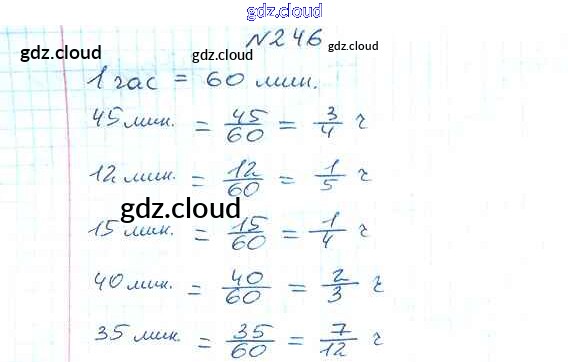 gdz.cloud
№246
gdz.cloud gdz.cloud gdz.cloud
1 час = 60 мин.
45 мин. = 45/60 = 3/4 ч
12 мин. = 12/60 = 1/5 ч
gdz.cloud
15 мин. = 15/60 = 1/4 ч
40 мин. = 40/60 = 2/3 ч
35 мин. = 35/60 = 7/12 ч